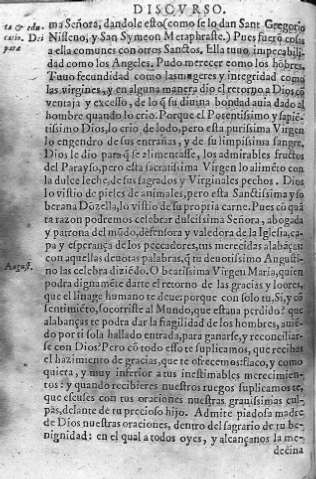 DISCVRSO.
ma Señora, dandole esto (como se lo dan Sant Gregorio
Nisseno, y San Symeon Metaphraste.) Pues fueró cosas
a ella comunes con otros Sanctos. Ella tuuo impecabili-
dad como los Angeles. Pudo merecer como los hóbres.
Tuuo fecundidad como las mugeres y integridad como
las virgines, y en alguna manera dio el retorno a Dios có
ventaja y excesso, de lo q̃ su diuina bondad auia dado al
hombre quando lo crio. Porque el Potentissimo y sapié-
tissimo Dios, lo crio de lodo, pero esta purissima Virgen
lo engendro de sus entrañas, y de su limpissima sangre.
Dios le dio para q̃ se alimentasse, los admirables fructos
del Parayso, pero esta sacratissima Virgen lo alimétο con
la dulce leche, de sus sagrados y Virginales pechos. Dios
lo vistio de pieles de animales, pero esta Sanctissima y so
berana Dózella, lo vistio de su propria carne. Pues có quá
ta razon podremos celebrar dulcissima Señora, abogada
y patrona del múdo, defensora y valedora de la Iglesia, ca-
pa y esperança de los peccadores, tus merecidas alabáças:
con aquellas deuotas palabras, q̃ tu deuotissimo Augusti-
no las celebra diziédo. O beatissima Virgen Maria, quien
podra dignaméte darte el retorno de las gracias y loores,
que el linage humano te deue: porque con solo tu, Si, y có
sentimiéto, socorriste al Mundo, que estaua perdido? que
alabanças te podra dar la fragilidad de los hombres, auié-
do por ti sola hallado entrada, para ganarse, y reconciliar-
se con Dios? Pero có todo esto te suplicamos, que recibas
el hazimiento de gracias, que te ofrecemos: flaco, y como
quiera, y muy inferior a tus inestimables merecimien-
tos: y quando recibieres nuestros ruegos suplicamos te,
que escuses con tus oraciones nuestras grauissimas cul-
pas, delante de tu precioso hijo. Admite piadosa madre
de Dios nuestras oraciones, dentro del sagrario de tu be-
nignidad: en el qual a todos oyes, y alcançanos la me-
decina
August.